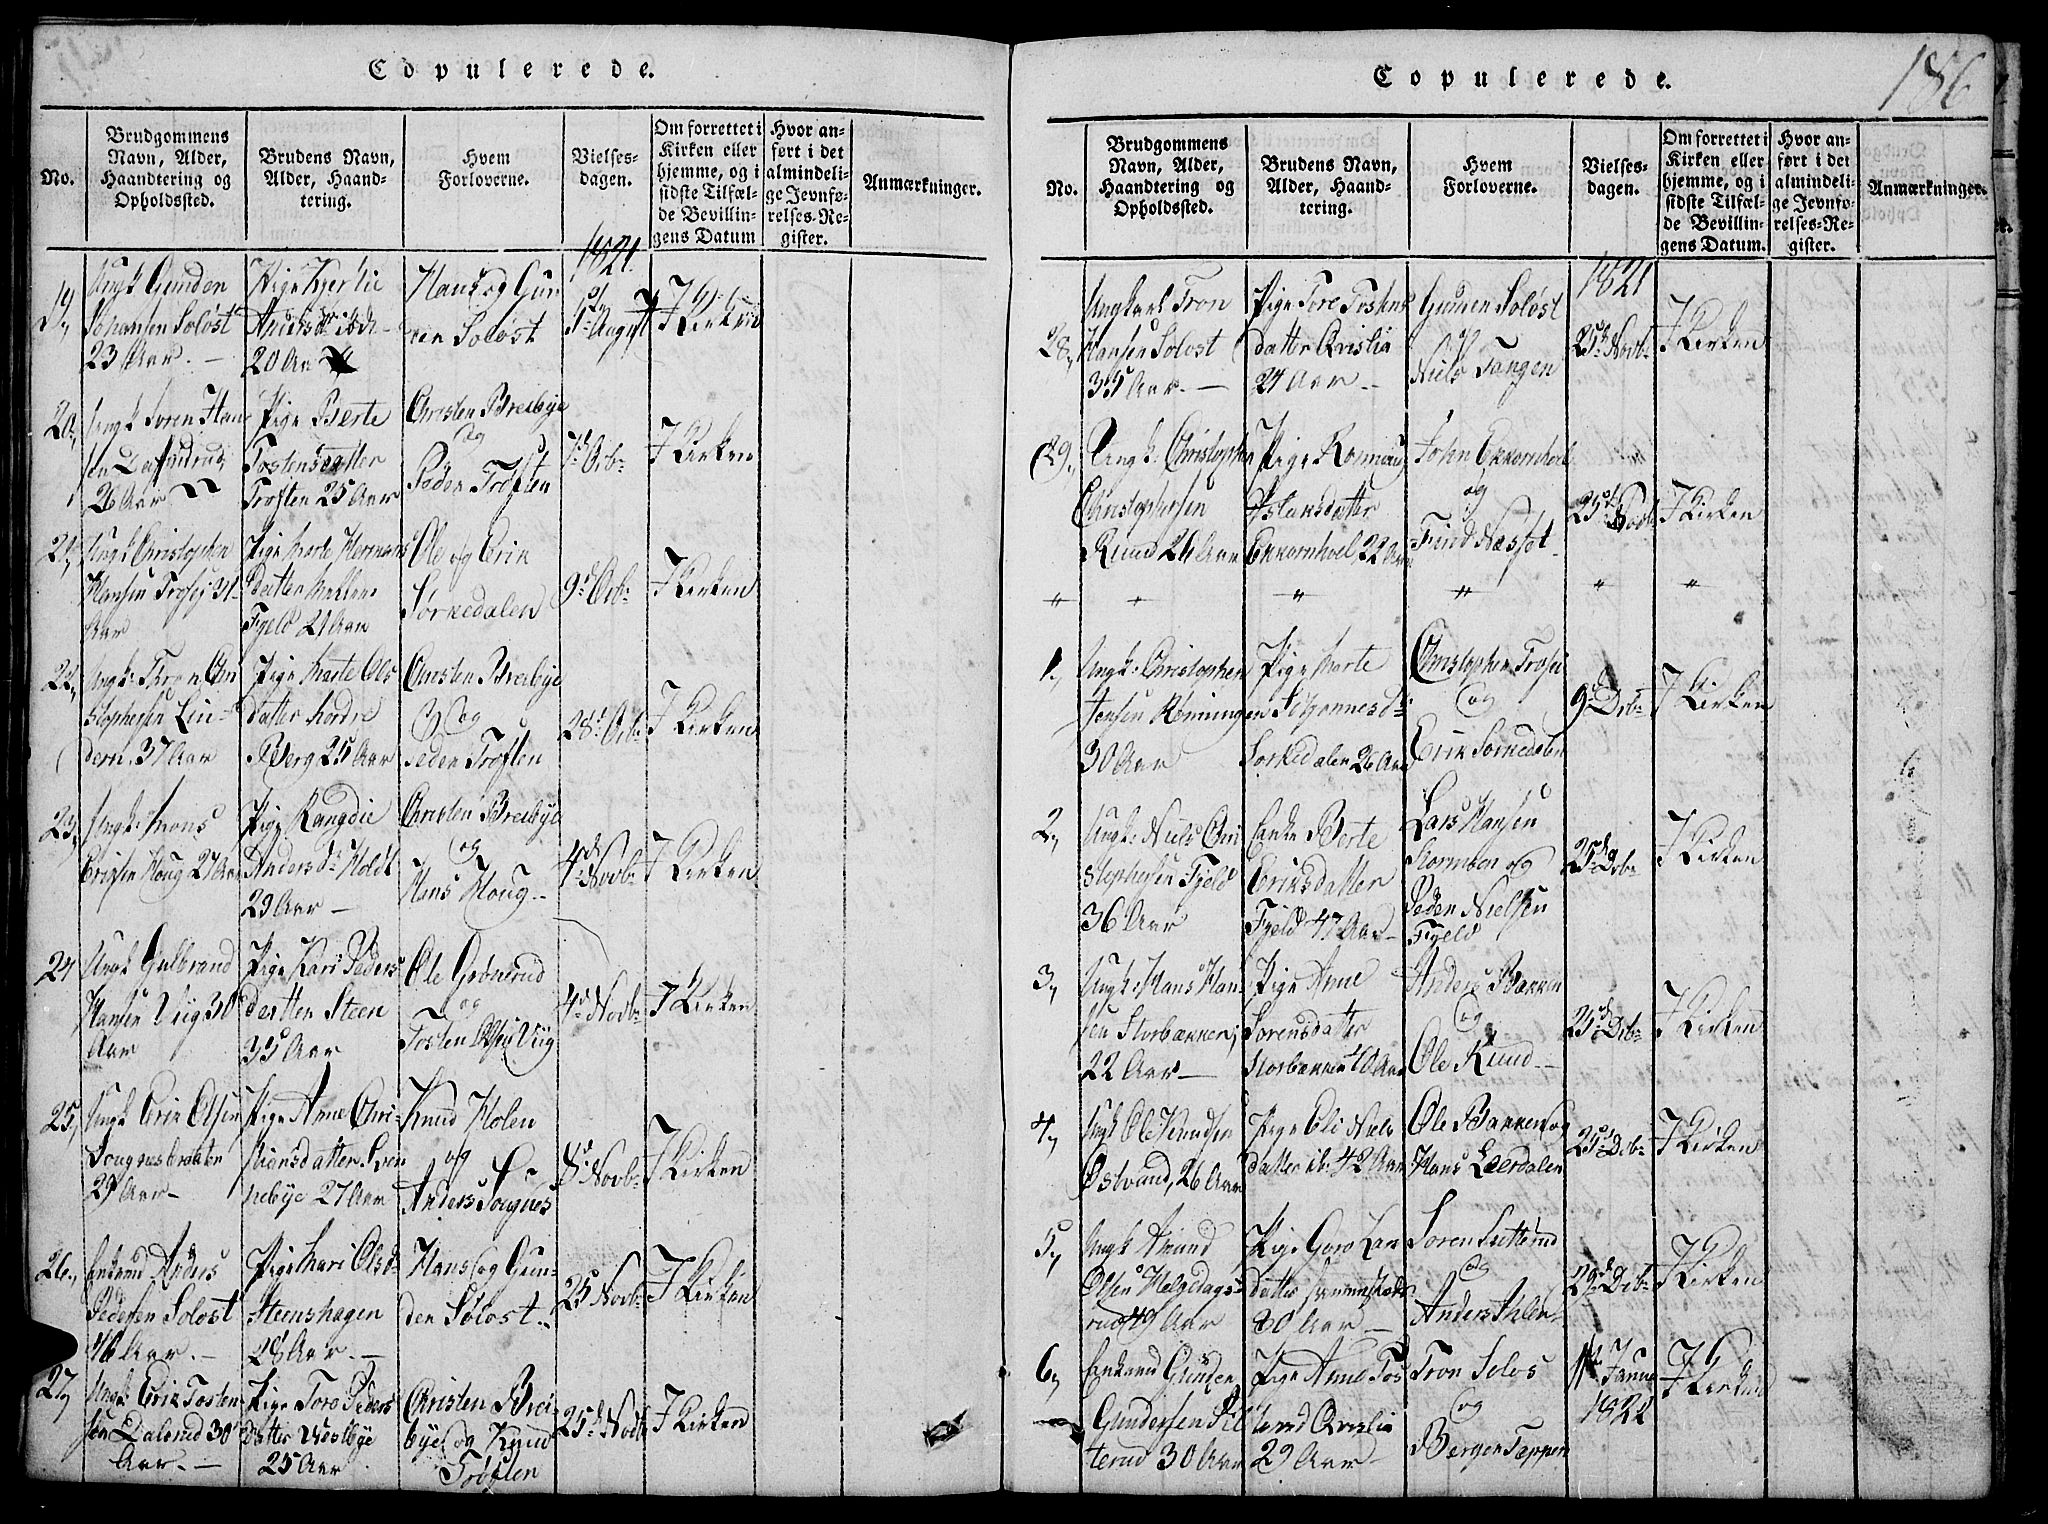 Copulerede.
No.
Brudgommens
Navn, Alder,
Haandtering og
Opholdssted.
Brudens Navn,
Alder, Haand-
tering.
Hvem
Forloverne.
Vielses-
dagen.
Om forrettet i
Kirken eller
hjemme, og i
sidste Tilfæl-
de Bevillin-
gens Datum
Hvor an-
ført i det
almindeli-
ge Jevnfø-
relses-Re-
gister.
Anmærkninger.
1821.
19,
Ungk Gunder
Johansen Soløst
23 Aar. -
Pige Kjersti
Andersdr ibd
20 Aar
Hans og Gun
ren Soløst
5te August
I Kirken
20,
Ungk Soren Han
sen
26 Aar
Pige Berte
Tostensdatter
Trøften 25 Aar
Christen Breibye
og
Peder Trøften
7d Octbr
I Kirken
21,
Ungk Christopher
Hansen Trosei 31
Aar
Pige Marte Hermans
Datter
Fjeld 21 Aar
Ole og Erik
Sørkedalen
9d Octbr
I Kirken
22,
Ungk Thron Chri
stophersen Lin-
dern 37 Aar
Pige Marte Ols
datter Nordre
Berg 25 Aar
Christen Breibye
og
Peder Trøften
28d Octbr
I Kirken
23,
Ungk Mons
Erichsen Houg 27 Aar
Pige Rangdie
Andersdr Holdt
29 Aar -
Christen Breibye
og
Hans Houg.-
4de Novbr
I Kirken
24
Ungk Gulbrand
Hansen Viig 30
Aar
Pige Kari Peders
datter Steen
35 Aar
Ole Grønerud
og
Tosten Olsen Viig
4d Novbr
I Kirken
25,
Ungk Erik Olsen
Sougnesbraaten
29 Aar -
Pige Anne Chri-
stiansdatter Sven
nebye 27 Aar
Knud Holen
og
Anders Sougnes
Novbr
I Kirken
26,
Enkemd Anders
Pedersen Soløst
46 Aar. -
Pige Mari Olsd
Steenshagen
28 Aar. -
Hans og Gun-
der Soløst.
25 Novbr
I Kirken
27,
Ungk Erik Tosten
sen Dalerud 30
Aar. -
Pige Toro Peders
datter Westbye
25 Aar
Christen Brei
bye og Knud
Trøften
25d Novbr
I Kirken
Copulerede.
186
No.
Brudgommens
Navn, Alder,
Haandtering og
Opholdssted.
Brudens Navn,
Alder, Haand-
tering.
Hvem
Forloverne.
Vielses-
dagen.
Om forrettet i
Kirken eller
hjemme, og i
sidste Tilfæl-
de Bevillin-
gens Datum.
Hvor an-
ført i det
almindeli-
ge Jevnfø-
relses-Re-
gister.
Anmærkninger.
1821
28,
Ungkarl Tron
Hansen Soløst
35 Aar. -
Pige Tore Tostens
datter Qvislia
24 Aar. -
Gunder Soløst
og
Niels Tangen
25d Novbr
I Kirken
29,
Ungk: Christopher
Christophersen
Ruud 26 Aar
Pige Ronnaug
Aslaksdatter
Ekkornhoel 22 Aar
John Ekkornhoel
og
Find Næsset
25d Novbr
I Kirken
" " " " " "
1,
Ungk: Christopher
Jensen Rønningen
30 Aar
Pige Marte
Johannesdr
Sorkedalen 26 Aar
Christopher Trosei
og
Erik Sorkedalen
9d Decbr
I Kirken
2,
Ungk: Niels Chri
stophersen Fjeld
36 Aar
Enke Berte
Eriksdatter
Fjeld 47 Aar -
Lars Hansen
Kornmoen og
Peder Nielsen
Fjeld
25de Decbr
I Kirken
3,
Ungk: Hans Han
sen Storbækken
22 Aar -
Pige Anne
Sorensdatter
Storbækken 40 Aar
Anders Bækken
og
Ole Ruud -
25d Decbr
I Kirken
4,
Ungk Ole Knudsen
Østvand, 26 Aar
Pige Eli Niels
datter ib: 42 Aar
Ole Bakken og
Hans Leerdalen
25d Decbr
I Kirken
5,
Ungk Amund
Olsen Helgedags-
rud 49 Aar
Pige Goro Lars
datter
30 Aar -
Soren Sætterud
og
Anders Ahlen
29d Decbr
I Kirken
6,
Enkemd Gunder
Gundersen Sil
terud 30 Aar
Pige Anne Tos
Qvislia
29 Aar -
Tron Soløs
og
Berger Tæppen
1te Janua
1822
I Kirken